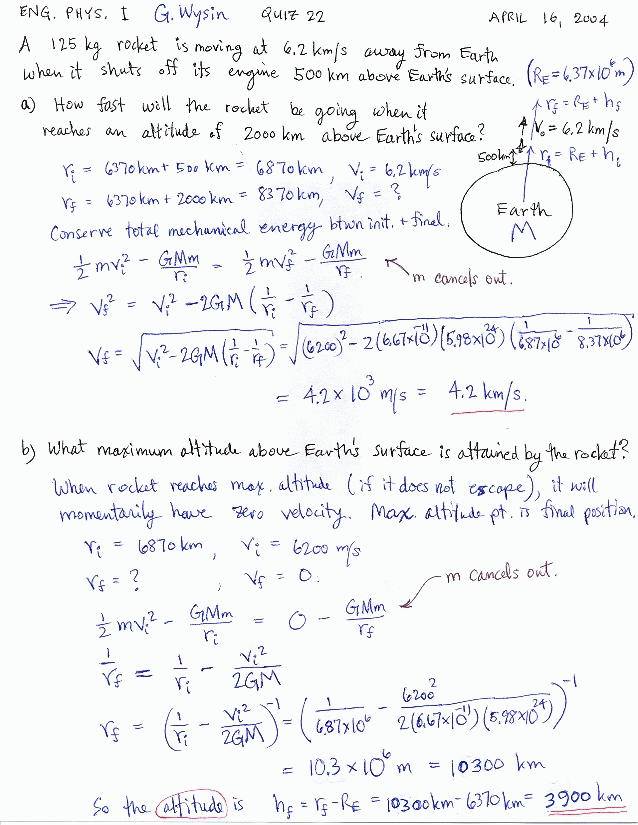 ENG. PHYS. I G. Wysin QUIZ 22 APRIL 16, 2004
A 125 kg rocket is moving at 6.2 km/s away from Earth
when it shuts off its engine 500 km above Earth's surface. (R_E = 6.37×10⁶ m)
a) How fast will the rocket be going when it
reaches an altitude of 2000 km above Earth's surface?
r_f = R_E + h_f
V₀ = 6.2 km/s
500km
r_i = R_E + h_i
Earth
M
r_i = 6370 km + 500 km = 6870 km, V_i = 6.2 km/s
r_f = 6370 km + 2000 km = 8370 km, V_f = ?
Conserve total mechanical energy btwn init. + final.
½ m v_i² - GMm/r_i = ½ m v_f² - GMm/r_f. m cancels out.
⇒ V_f² = V_i² - 2GM (1/r_i - 1/r_f)
V_f = √(V_i² - 2GM(1/r_i - 1/r_f)) = √((6200)² - 2(6.67×10⁻¹¹)(5.98×10²⁴)(1/6.87×10⁶ - 1/8.37×10⁶))
= 4.2 × 10³ m/s = 4.2 km/s.
b) What maximum altitude above Earth's surface is attained by the rocket?
When rocket reaches max. altitude (if it does not escape), it will
momentarily have zero velocity. Max. altitude pt. is final position.
r_i = 6870 km, V_i = 6200 m/s
r_f = ? , V_f = 0.
½ m v_i² - GMm/r_i = 0 - GMm/r_f m cancels out.
1/r_f = 1/r_i - V_i²/2GM
r_f = (1/r_i - V_i²/2GM)⁻¹ = (1/6.87×10⁶ - 6200²/2(6.67×10⁻¹¹)(5.98×10²⁴))⁻¹
= 10.3 × 10⁶ m = 10300 km
So the altitude is h_f = r_f - R_E = 10300 km - 6370 km = 3900 km